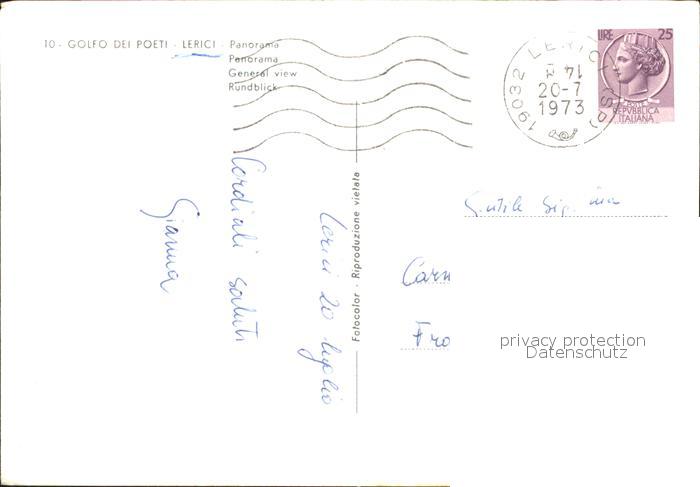 10 - GOLFO DEI POETI - LERICI - Panorama
Panorama
General view
Rundblick
19032 LERICI (SP)
14
20-7
1973
LIRE 25
REPUBBLICA
ITALIANA
Lerici 20 luglio
Cordiali saluti
Gianna
Fotocolor - Riproduzione vietata
Gentile Sig.na
Carn
Fro
privacy protection
Datenschutz